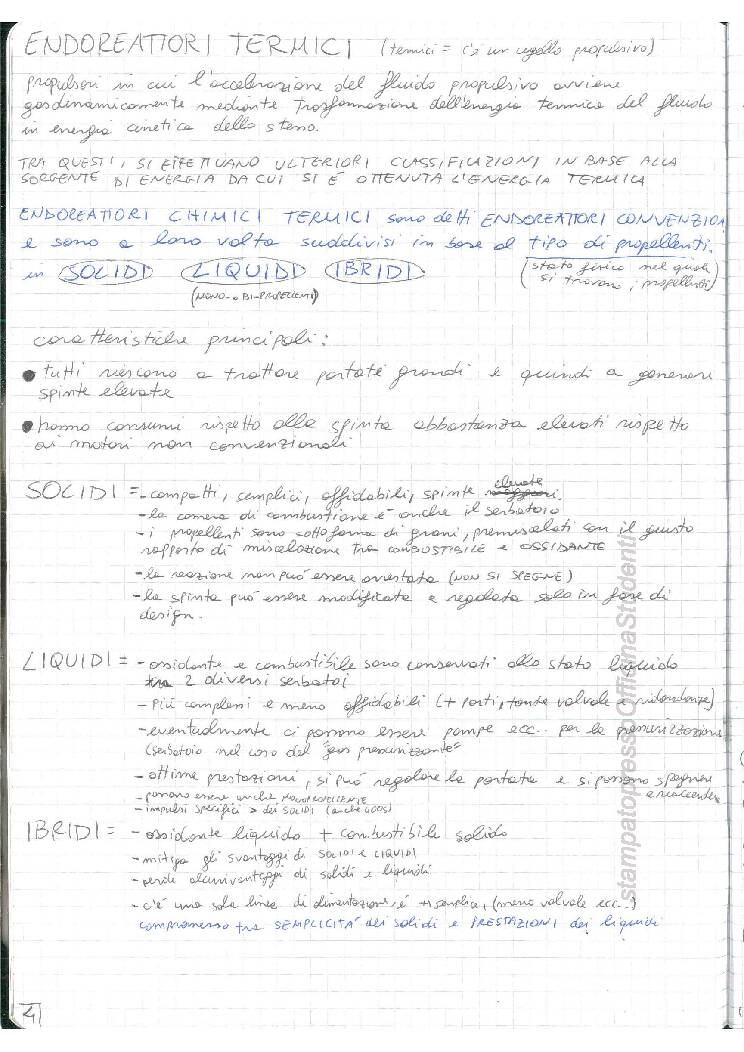 ENDOREATTORI TERMICI (termici = c'è un ugello propulsivo)
propulsori in cui l'accelerazione del fluido propulsivo avviene
gasdinamicamente mediante trasformazione dell'energia termica del fluido
in energia cinetica dello stesso.
TRA QUESTI, SI EFFETTUANO ULTERIORI CLASSIFICAZIONI IN BASE ALLA
SORGENTE DI ENERGIA DA CUI SI È OTTENUTA L'ENERGIA TERMICA
ENDOREATTORI CHIMICI TERMICI sono detti ENDOREATTORI CONVENZIO
e sono a loro volta suddivisi in base al tipo di propellenti.
in SOLIDI LIQUIDI IBRIDI (stato fisico nel quale
si trovano i propellenti)
(MONO- o BI-PROPELLENTI)
caratteristiche principali:
● tutti riescono a trattare portate grandi e quindi a generare
spinte elevate
● hanno consumi rispetto alla spinta abbastanza elevati rispetto
ai motori non convenzionali
SOLIDI = - compatti, semplici, affidabili, spinte elevate
- la camera di combustione è anche il serbatoio
- i propellenti sono sotto forma di grani, premiscelati con il giusto
rapporto di miscelazione tra COMBUSTIBILE e OSSIDANTE
- la reazione non può essere arrestata (NON SI SPEGNE)
- la spinta può essere modificata e regolata solo in fase di
design.
LIQUIDI = - ossidante e combustibile sono conservati allo stato liquido
tra 2 diversi serbatoi
- più complessi e meno affidabili (+ parti, tante valvole e ridondanze)
- eventualmente ci possono essere pompe ecc... per la pressurizzazione
(serbatoio nel caso del "gas pressurizzante"
- ottime prestazioni, si può regolare la portata e si possono spegnere
e riaccendere
- possono essere anche MONOPROPELLENTE
- impulsi specifici > dei SOLIDI (anche 400s)
IBRIDI = - ossidante liquido + combustibile solido
- mitiga gli svantaggi di SOLIDI e LIQUIDI
- perde alcuni vantaggi di solidi e liquidi
- c'è una sola linea di alimentazione, è + semplice, (meno valvole ecc...)
compromesso tra SEMPLICITÀ dei solidi e PRESTAZIONI dei liquidi
4
stampatopressoOfficinaStudenti